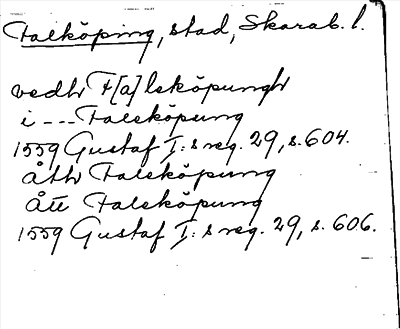 Falköping, stad, Skarab. l.
vedh F[a]lsköpungh
i --- Falsköpung
1559 Gustaf I:s reg. 29, s. 604.
åth Falsköpung
Ått Falsköpung
1559 Gustaf I:s reg. 29, s. 606.